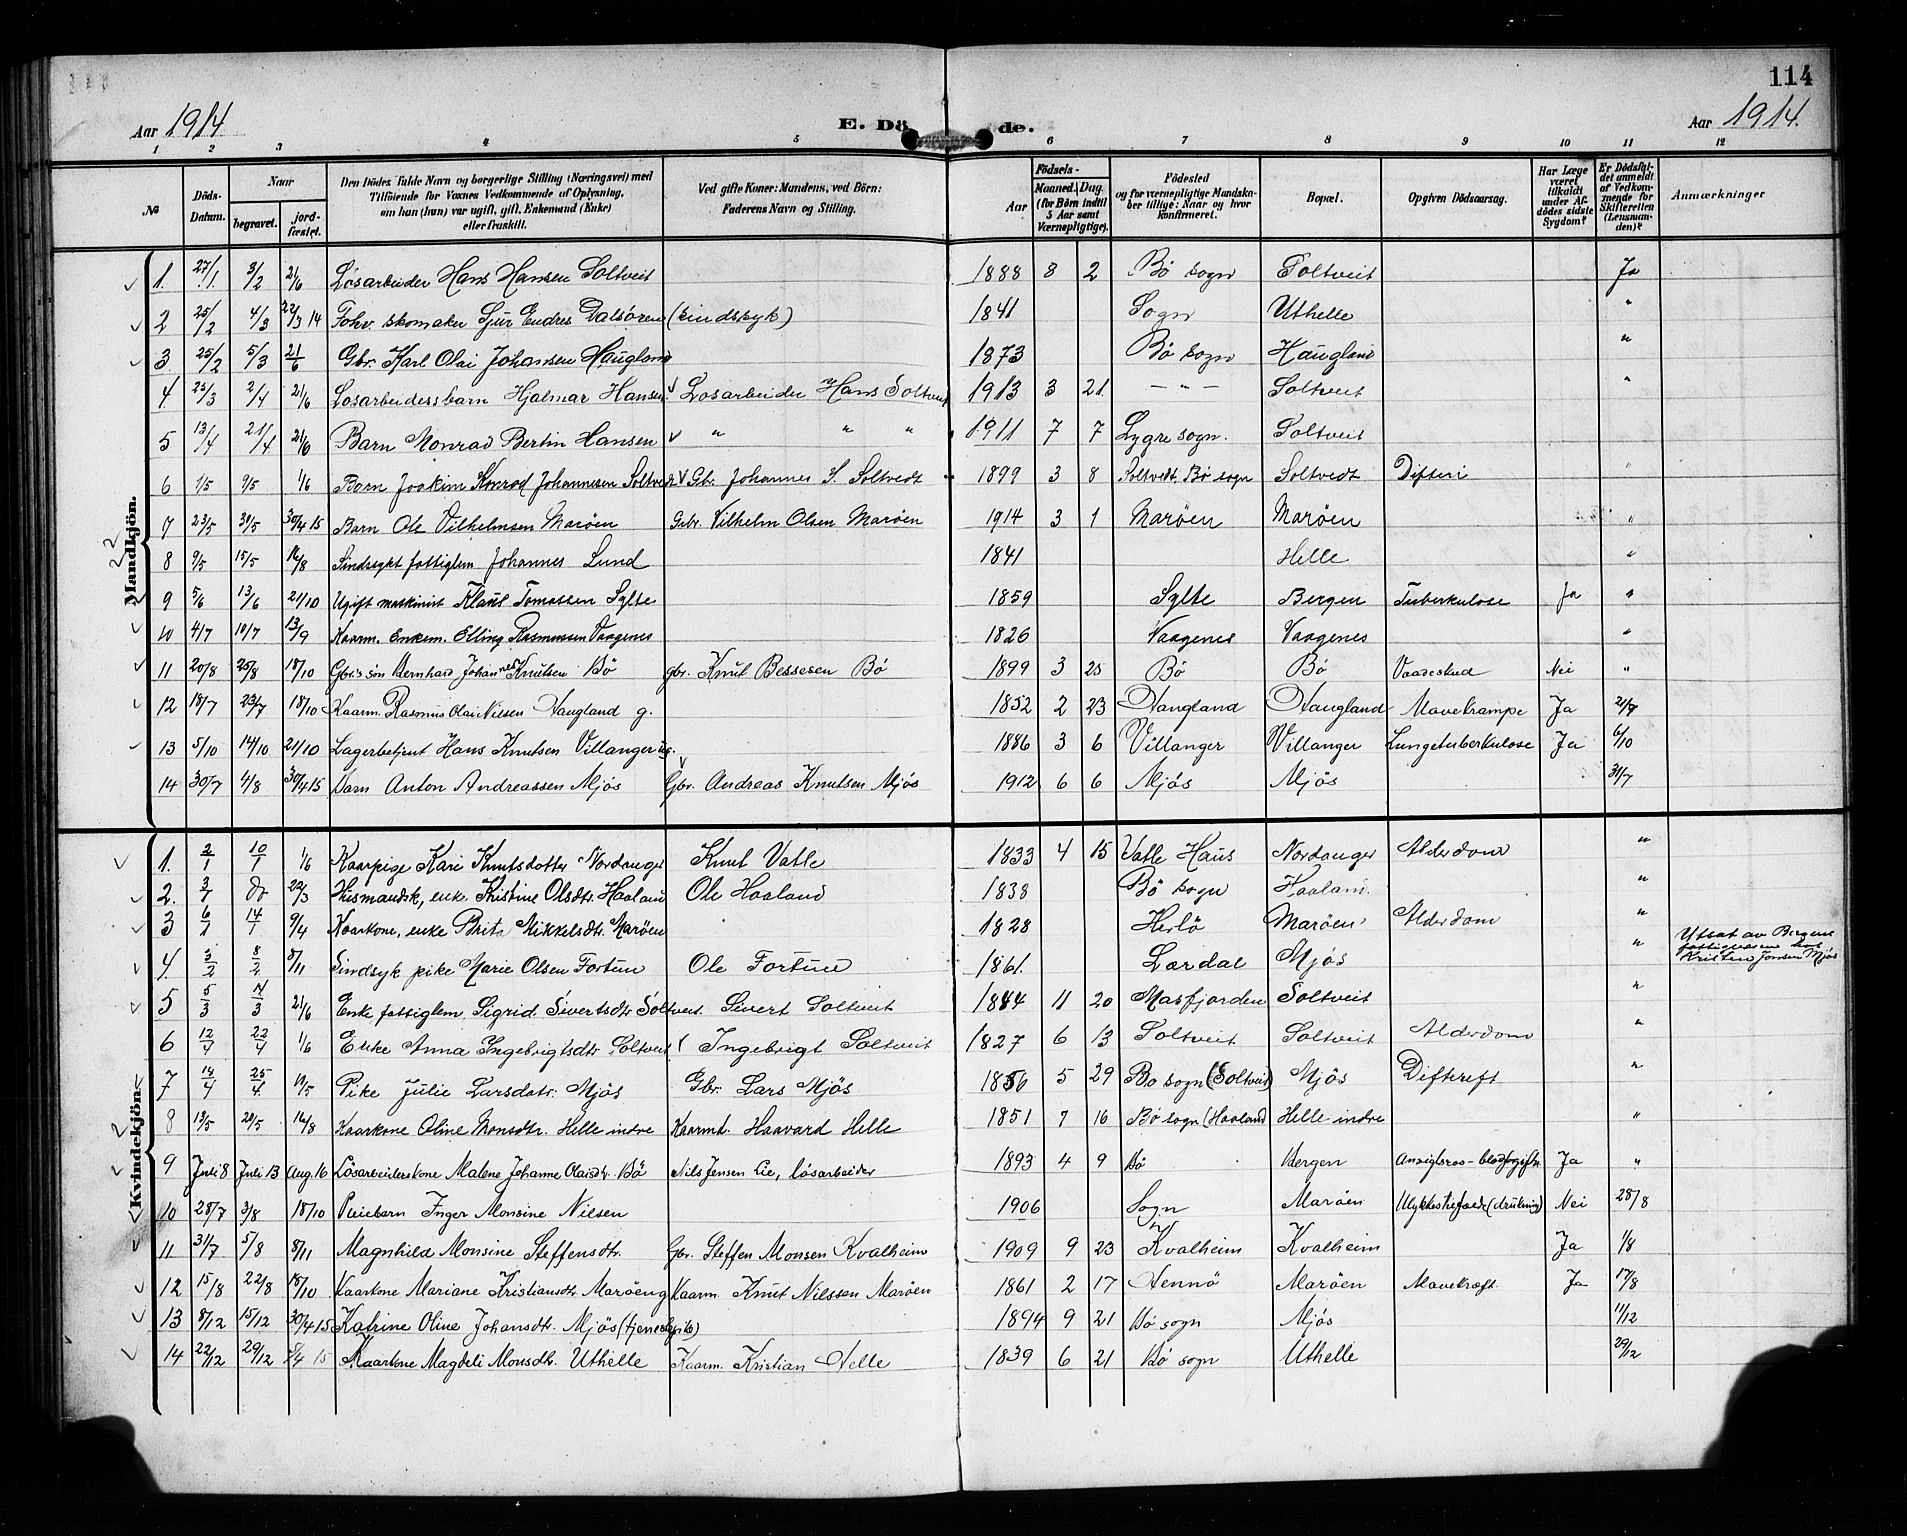 114
Aar 1914
E. Dö de.
Aar 1914.
1 2 3 4 5 6 7 8 9 10 11 12
No Döds-Datum. Naar begravet. jord-fæstet. Den Dödes fulde Navn og borgerlige Stilling (Næringsvei) med Tilföiende for Voxnes Vedkommende af Oplysning, om han (hun) var ugift, gift, Enkemand (Enke) eller fraskilt. Ved gifte Koner: Mandens, ved Börn: Faderens Navn og Stilling. Födsels- Aar Maaned. Dag. (for Börn indtil 5 Aar samt Værnepligtige). Födested og for værnepligtige Mandskaber tillige: Naar og hvor konfirmeret. Bopæl. Opgiven Dödsaarsag. Har Læge været tilkaldt under Afdödes sidste Sygdom? Er Dödsfaldet anmeldt af Vedkommende for Skifteretten (Lensmanden)? Anmærkninger
Mandkjön.
1. 27/1 3/2 21/6 Løsarbeider Hans Hansen Soltveit 1888 8 2 Bö sogn Soltveit Ja
2 25/2 4/3 22/3 14 Forhv. skomaker Sjur Endres Dalsören (sindssyk) 1841 Sogn Uthelle "
3. 25/2 5/3 21/6 Gbr. Karl Olai Johansen Haugland 1873 Bö sogn Haugland "
4 25/3 2/4 21/6 Losarbeidersbarn Hjalmar Hansen Losarbeider Hans Soltveit 1913 3 21. — " — Soltveit "
5 13/4 21/4 21/6 Barn Monrad Bertin Hansen " " " 1911 7 7 Lygre sogn. Soltveit
6 1/5 9/5 1/6 Barn Joakim Konrad Johannesen Soltvedt Gbr. Johannes S. Soltvedt 1899 3 8 Soltvedt, Bö sogn Soltvedt Difteri "
7 23/5 30/5 30/4 15 Barn Ole Vilhelmsen Maröen Gbr. Vilhelm Olsen Maröen 1914 3 1 Maröen Maröen "
8 9/5 15/5 16/8 Sindssykt fattiglem Johannes Lund 1841 Helle "
9 5/6 13/6 21/10 Ugift maskinist Klaus Tomassen Sylte 1859 Sylte Bergen Tuberkulose Ja "
10 4/7 10/7 13/9 Kaarm. Enkem. Elling Rasmussen Vaagenes 1826 Vaagenes Vaagenes "
11 20/8 25/8 18/10 Gbr.s sön Bernhard Johannes Knutsen Bö gbr. Knut Bessesen Bö 1899 3 25 Bö Bö Vaadeskud Nei "
12 18/7 23/7 18/10 Kaarm. Rasmus Olai Nilsen Haugland g. 1852 2 23 Haugland Haugland Mavekrampe Ja 21/7
13 5/10 14/10 21/10 Lagerbetjent Hans Knutsen Villanger ug. 1886 3 6 Villanger Villanger Lungetuberkulose Ja 6/10
14 30/7 4/8 30/4 15 Barn Anton Andreassen Mjös Gbr. Andreas Knutsen Mjös 1912 6 6 Mjös Mjös 31/7
Kvindekjön.
1. 2/1 10/1 1/6 Kaarpige Kari Knutsdotter Nordanger Knut Vatle 1833 4 15 Vatle Haus Nordanger Alderdom "
2. 3/1 do 22/3 Husmandsk, enke Kristine Olsdtr. Haaland Ole Haaland 1838 Bö sogn Haaland. "
3 6/1 14/1 9/4 Kaarkone, enke Brita Mikkelsdtr. Maröen 1828 Herlö Maröen Alderdom "
4. 3/2 8/2 8/11 Sindsyk pike Marie Olsen Fortun Ole Fortun 1861. Lærdal Mjös " Utsat av Bergens fattigvæsen hos Kristen Jonsen Mjös
5 5/3 /3 21/6 Enke fattiglem Sigrid Sivertsdtr Soltveit. Sivert Soltveit 1844 11 20 Masfjorden Soltveit "
6 12/4 22/4 1/6 Enke Anna Ingebrigtsdtr Soltveit Ingebrigt Soltveit 1827 6 13 Soltveit Soltveit Alderdom "
7 18/4 25/4 19/5 Pike Julie Larsdatr. Mjös Gbr. Lars Mjös 1856 5 29 Bo sogn (Soltveit) Mjös "
8 13/5 20/5 16/8 Kaarkone Oline Monsdtr. Helle indre Kaarmd. Haavard Helle 1851 7 16 Bö sogn (Haaland) Helle indre "
9 Juli 8 Juli 13 Aug 16 Lösarbeiderskone Malene Johanne Olaisdr. Bö Nils Jensen Lie, lösarbeider 1893 4 9 Bö Bergen Ja "
10 28/7 3/8 18/10 Pleiebarn Inger Monsine Nilsen 1906 Sogn Maröen Ulykkestilfælde (drukning) Nei 28/8
11 31/7 5/8 8/11 Magnhild Monsine Steffensdtr. Gbr. Steffen Monsen Kvalheim 1909 9 23 Kvalheim Kvalheim Ja 1/8
12 15/8 22/8 18/10 Kaarkone Mariane Kristiansdtr Maröen g Kaarm. Knut Nilssen Maröen 1861 2 17 Hennö Maröen Mavekræft. Ja 17/8
13 8/12 15/12 30/4 15 Katrine Oline Johansdtr. Mjös (tjenestepike) 1894 9 21 Bö sogn Mjös 11/12
14 22/12 29/12 /4 15 Kaarkone Magdeli Monsdtr. Uthelle Kaarm. Kristian Helle 1839 6 21 Bö sogn Uthelle 29/12